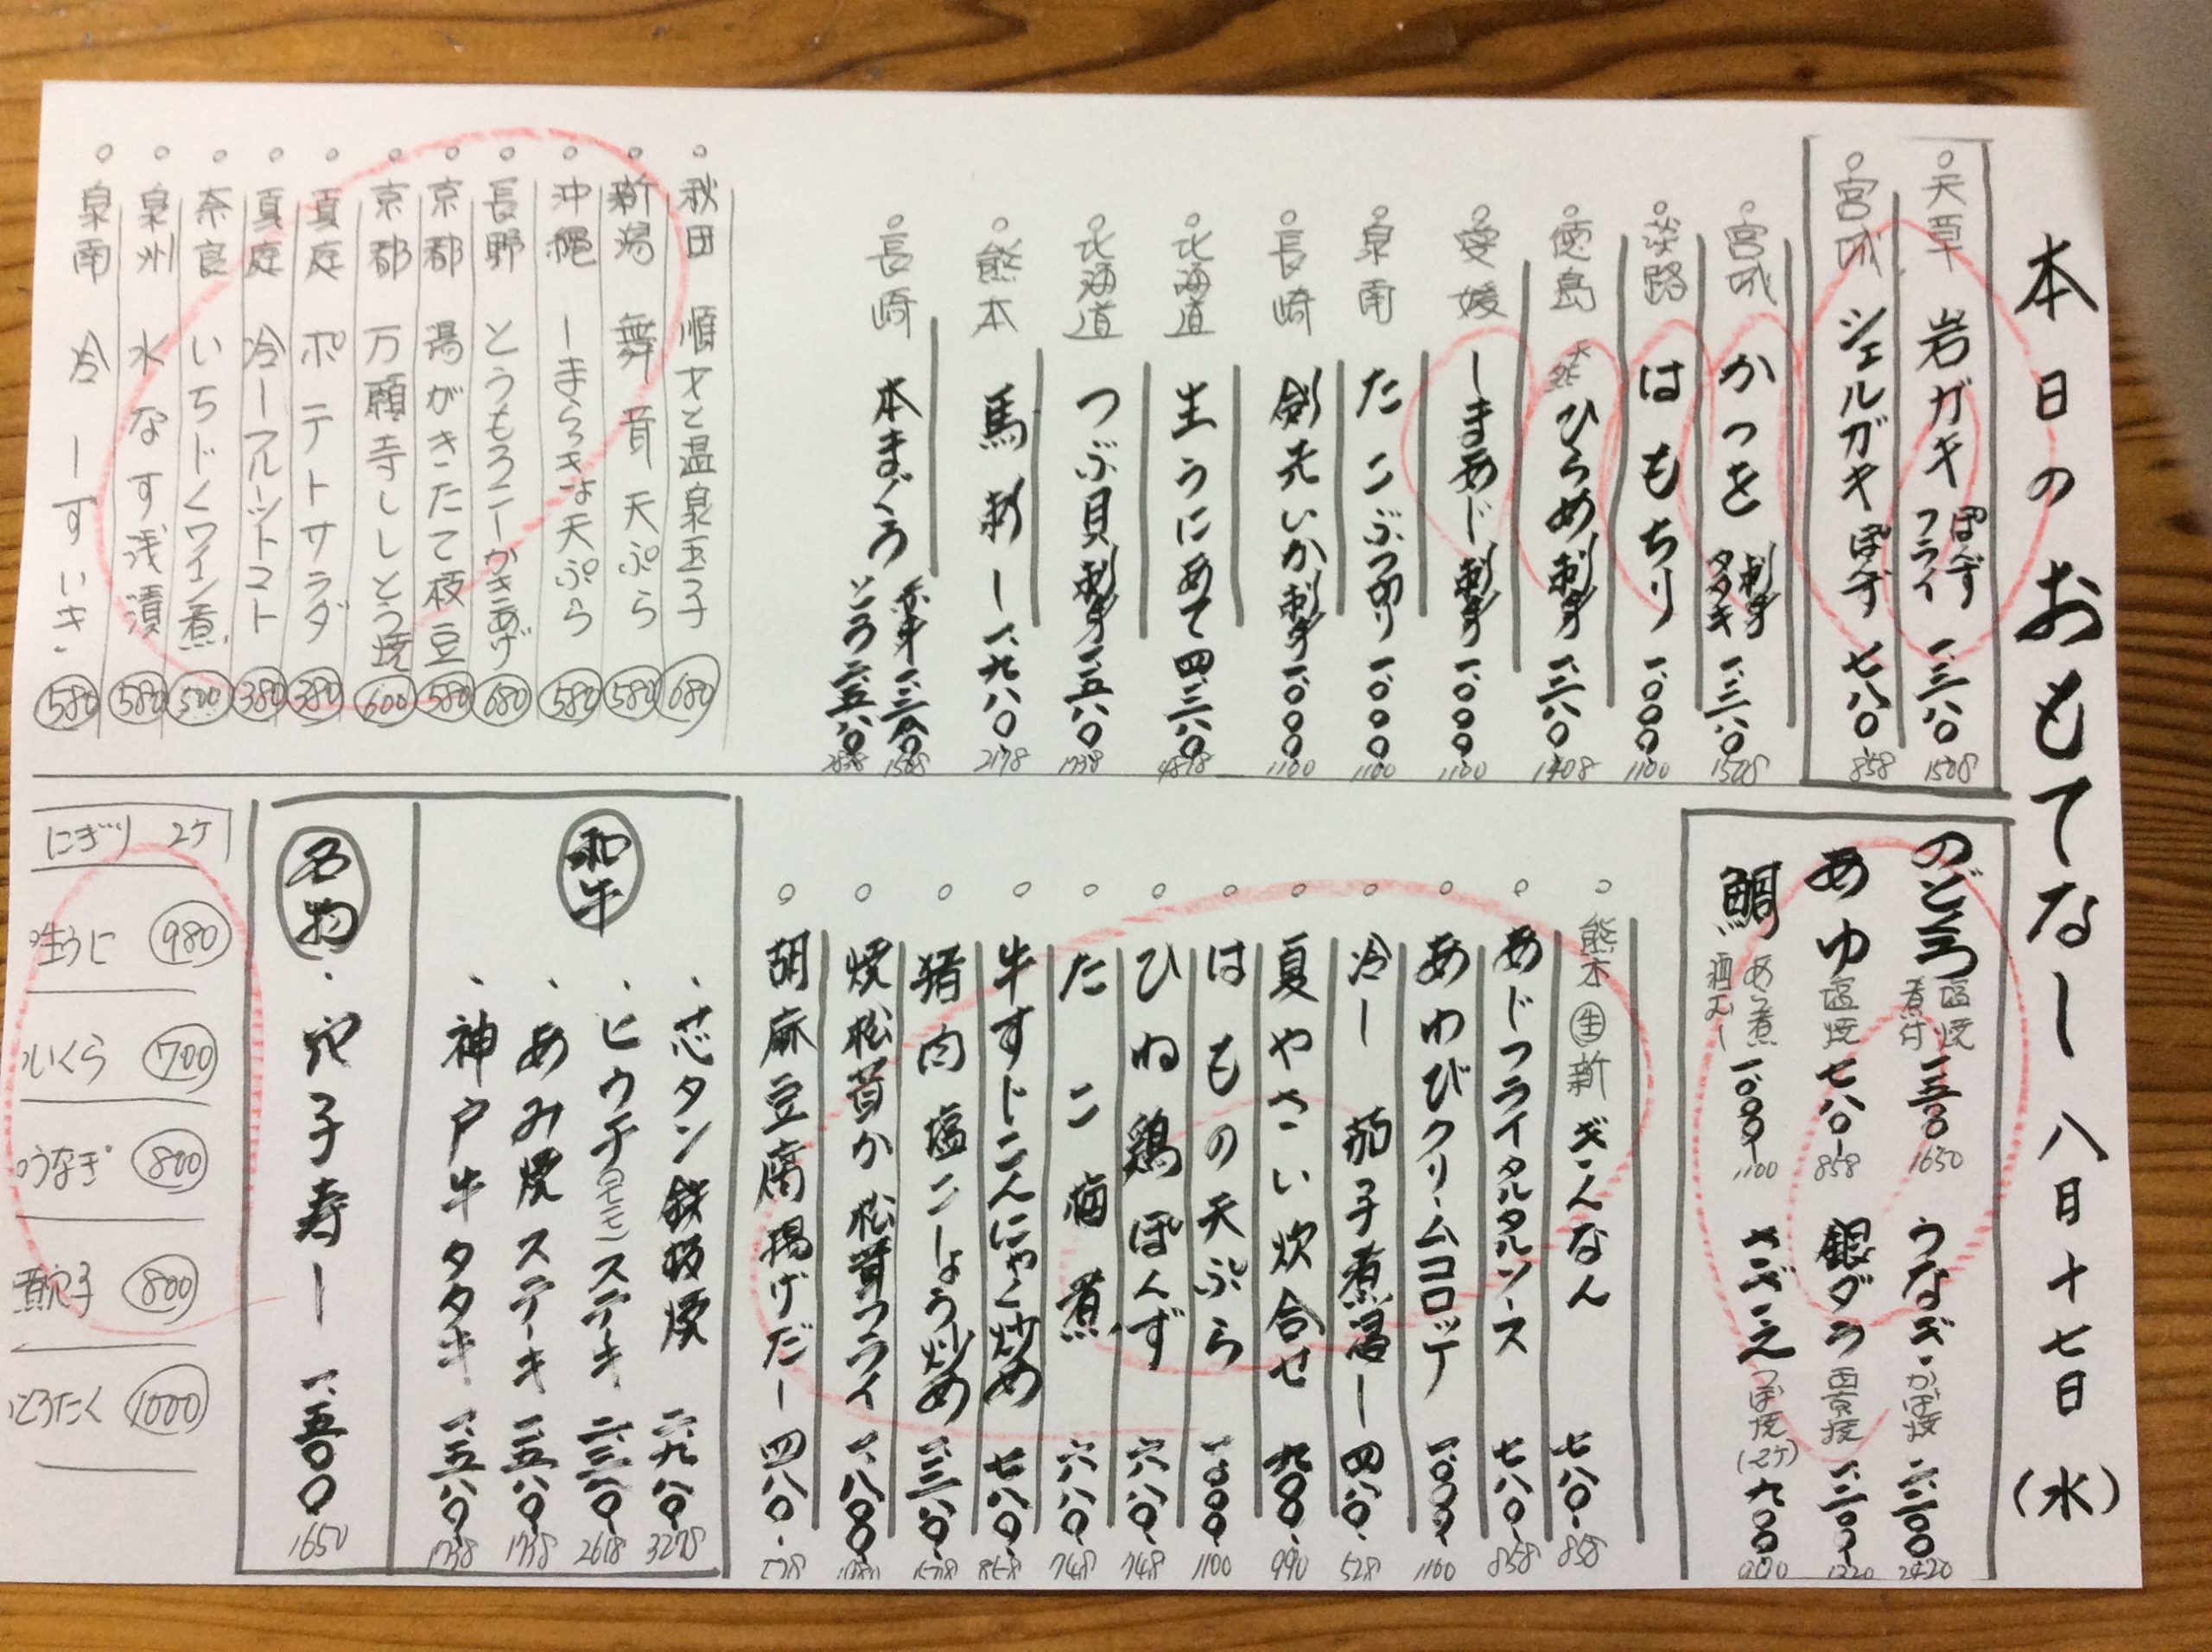 本日のおもてなし 八月十七日(水)
天草 岩ガキ ぽんず フライ 一、三八〇 1508
宮城 シェルガキ ぽんず 七八〇 858
宮城 かつを タタキ 1528
淡路 はもちり 一、〇〇〇 1100
徳島 天然 ひらめ
愛媛 しまあじ 一、〇〇〇 1100
泉南 たこぶつ切り 一、〇〇〇 1100
長崎 剣先いか 一、〇〇〇 1100
北海道 生うにあて 四、三八〇 4818
北海道 つぶ貝 一、五八〇 1738
熊本 馬刺し 一、九八〇 2178
長崎 本まぐろ 赤身 とろ 二、五八〇 2838
秋田 順才と温泉玉子 680
新潟 舞茸天ぷら 580
沖縄 しまらっきょ天ぷら 580
長野 とうもろこしかきあげ 680
京都 湯がきたて枝豆 580
京都 万願寺ししとう焼 600
真庭 ポテトサラダ 380
真庭 冷しフルーツトマト 380
奈良 いちじくワイン煮 500
泉州 水なす浅漬 580
泉南 冷しすいき 580
のどぐろ 塩焼 煮付 一、五〇〇 1650
うなぎ かば焼 二、二〇〇 2420
あゆ 塩焼 七八〇 858
銀ダラ 西京焼
鯛 あら煮 酒むし 一、〇〇〇 1100
さざえ つぼ焼(2ケ) 九〇〇
熊本 生 新 ぎんなん 七八〇 858
あじフライタルタルソース 七八〇 858
あわびクリームコロッケ 一、〇〇〇 1100
冷し 茄子煮浸し 四八〇 528
夏やさい炊合せ 九〇〇 990
はもの天ぷら 一、〇〇〇 1100
ひね鶏ぽんず 六八〇 748
たこ 煮 六八〇 748
牛すじこんにゃく炒め 七八〇 858
猪肉 塩こしょう炒め
焼松茸か松茸フライ 一、八〇〇
胡麻豆腐揚げだし 四八〇
和牛
芯タン鉄板焼 二、九八〇 3278
ヒウチ ステーキ 二、三八〇 2618
あみ焼ステーキ 一、五八〇 1738
神戸牛タタキ 一、五八〇 1738
名物
穴子寿し 一、五〇〇 1650
にぎり 2ケ
生うに 980
いくら 700
うなぎ 800
煮穴子 800
とろたく 1000